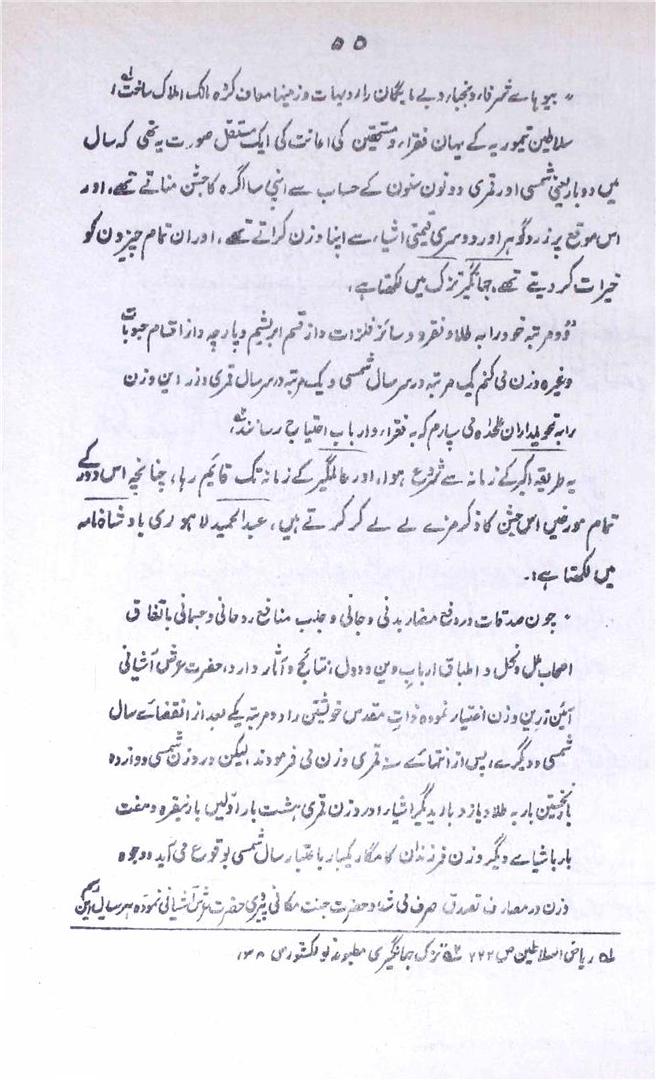 ۵۵
"بیوہاے شرفا، و نجبا، و بے مایگان را دیہات و زمینہا معاف کردہ مالک املاک ساخت" لہ
سلاطین تیموریہ کے یہان فقرا، و مستحقین کی اعانت کی ایک مستقل صورت یہ تھی کہ سال
میں دو بار یعنی شمسی اور قمری دونون سنون کے حساب سے اپنی سالگرہ کا جشن مناتے تھے، اور
اس موقع پر زر و گوہر اور دوسری قیمتی اشیا، سے اپنا وزن کراتے تھے، اور ان تمام چیزون کو
خیرات کر دیتے تھے، جہانگیر تزک میں لکھتا ہے،
"دو مرتبہ خود را بہ طلا و نقرہ و سائر فلزات و از قسم ابریشم و پارچہ و از اقسام حبوبات
وغیرہ وزن می کنم یک مرتبہ در سر سال شمسی و یک مرتبہ در سر سال قمری و زر این وزن
را بہ تحویلداران علحدہ می سپارم کہ بہ فقرا، و ارباب احتیاج رسانند"،
یہ طریقہ اکبر کے زمانہ سے شروع ہوا، اور عالمگیر کے زمانہ تک قایم رہا، چنانچہ اس دور کے
تمام مورخین اس جشن کا ذکر مزے لے لے کر کرتے ہیں، عبد الحمید لاہوری بادشاہ نامہ
میں لکھتا ہے:۔
"چون صدقات در دفع مضار بدنی و جانی و جذب منافع روحانی و جسمانی باتفاق
اصحاب ملل و نحل و اطباق ارباب دین و دول نتائج و آثار دارد، حضرت عرش آشیانی
آئین زرین وزن اختیار نمودہ ذات مقدس خویشتن را دو مرتبہ یکے بعد از انقضاے سال
شمسی و دیگرے، پس از انتہاے سنہ قمری وزن می فرمودند، لیکن در وزن شمسی دوازدہ
بار نخستین بار بہ طلا و یازدہ بار بدیگر اشیا، و در وزن قمری ہشت بار اولین بار بنقرہ و ہفت
بار باشیاے دیگر وزن فرزندان کامگار یکبار باعتبار سال شمسی بوقوع می آید و وجوہ
وزن در مصارف تصدق صرف می شد و حضرت جنت مکانی پیروی حضرت عرش آشیانی نمودہ ہر سال این
لہ ریاض السلاطین ص ۲۲۲ ۲ہ تزوک جہانگیری مطبوعہ نولکشور ص